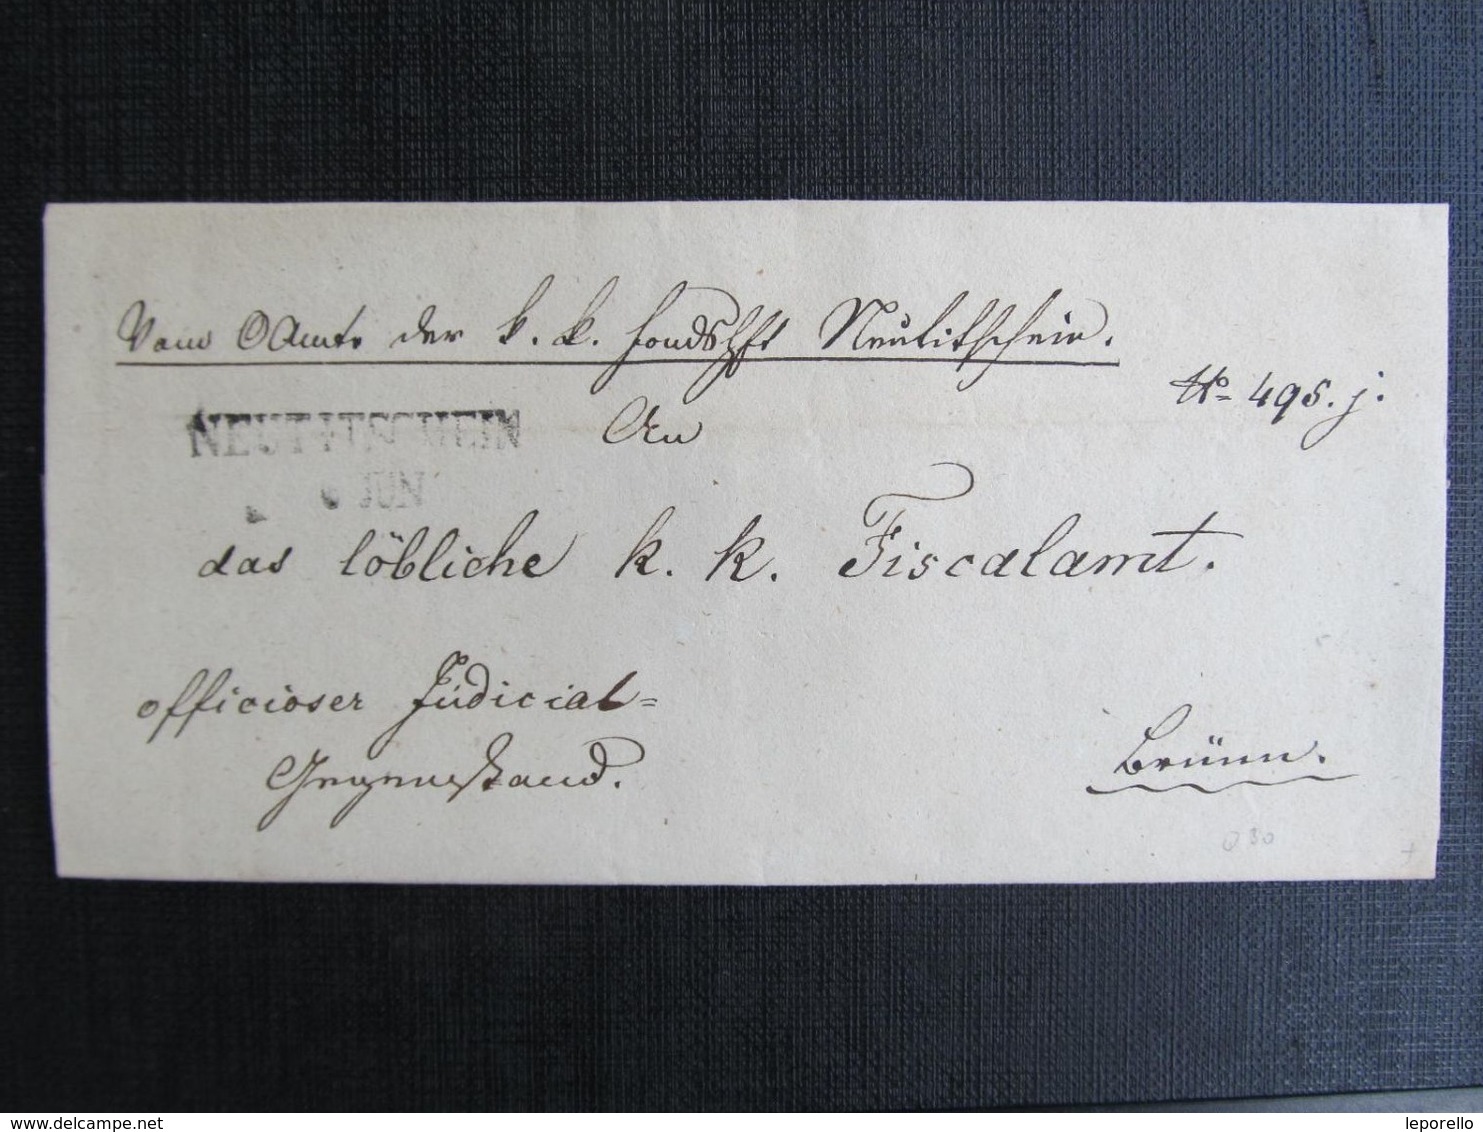 Vom OAmte der k. k. Fondshft Neutitschein.
No 495. j.
NEUTITSCHEIN
JUN
An
das löbliche k. k. Fiscalamt.
officioser Judicial=
Gegenstand.
Brünn.
030
delcampe.net
leporello